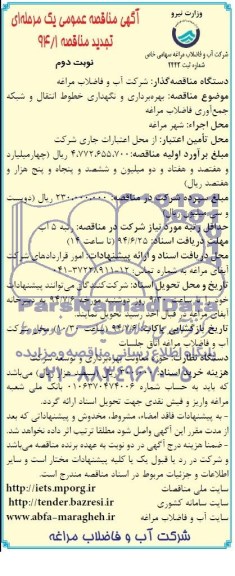 وزارت نیرو
شرکت آب و فاضلاب مراغه سهامی خاص
شماره ثبت ۲۴۴۳
آگهی مناقصه عمومی یک مرحله‌ای
تجدید مناقصه ۹۴/۱
نوبت دوم
دستگاه مناقصه‌گذار: شرکت آب و فاضلاب مراغه
موضوع مناقصه: بهره‌برداری و نگهداری خطوط انتقال و شبکه
جمع‌آوری فاضلاب مراغه
محل اجراء: شهر مراغه
محل تأمین اعتبار: از محل اعتبارات جاری شرکت
مبلغ برآورد اولیه مناقصه: ۴.۷۷۲.۶۵۵.۷۰۰ ریال (چهارمیلیارد
و هفتصد و هفتاد و دو میلیون و ششصد و پنجاه و پنج هزار و
هفتصد ریال)
مبلغ سپرده شرکت در مناقصه: ۲۳۰۰۰۰۰۰۰ ریال (دویست
و سی میلیون ریال)
حداقل رتبه مورد نیاز شرکت در مناقصه: رتبه ۵ آب
مهلت دریافت اسناد: ۹۴/۶/۲۵ (تا ساعت ۱۴)
محل دریافت اسناد و ارائه پیشنهادات: امور قراردادهای شرکت
آبفای مراغه به شماره تماس: ۱۲-۳۷۲۲۸۹۱۱-۰۴۱
تاریخ و محل تحویل اسناد: شرکت‌کنندگان می‌توانند پیشنهادات
آبفای مراغه در قبال اخذ رسید تحویل نمایند.
تاریخ بازگشایی پاکات: ۹۴/۷/۶
و فاضلاب مراغه اتاق جلسات
هزینه خرید اسناد:
که باید به حساب شماره ۰۱۰۶۳۷۰۴۷۴۰۰۶ بانک ملی شعبه
مراغه واریز و فیش نقدی جهت تحویل اسناد ارائه گردد.
- به پیشنهادات فاقد امضاء، مشروط، مخدوش و پیشنهاداتی که بعد
از مدت مقرر این آگهی واصل شود مطلقا ترتیب اثر داده نخواهد شد.
- ضمنا هزینه درج آگهی در دو نوبت به عهده برنده مناقصه می‌باشد
و شرکت در رد یا قبول یک یا کلیه پیشنهادات مختار است و سایر
اطلاعات و جزئیات مربوط در اسناد مناقصه مندرج است.
سایت ملی مناقصات http://iets.mporg.ir
سایت سامانه کشوری http://tender.bazresi.ir
سایت آب و فاضلاب مراغه www.abfa-maragheh.ir
شرکت آب و فاضلاب مراغه
ParsNamadData
پایگاه اطلاع رسانی مناقصه و مزایده
۰۲۱-۸۸۳۴۹۶۷۰-۵